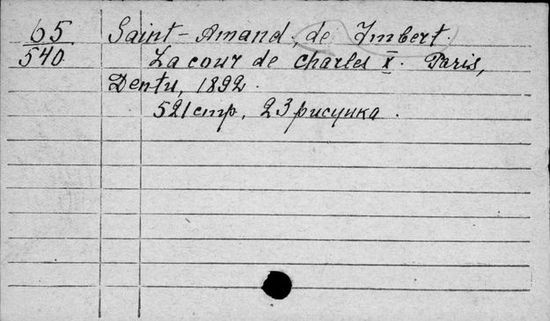 65
540
Saint-Amand, de Imbert.
La cour de Charles X. Paris,
Dentu, 1892.
521 стр., 23 рисунка.